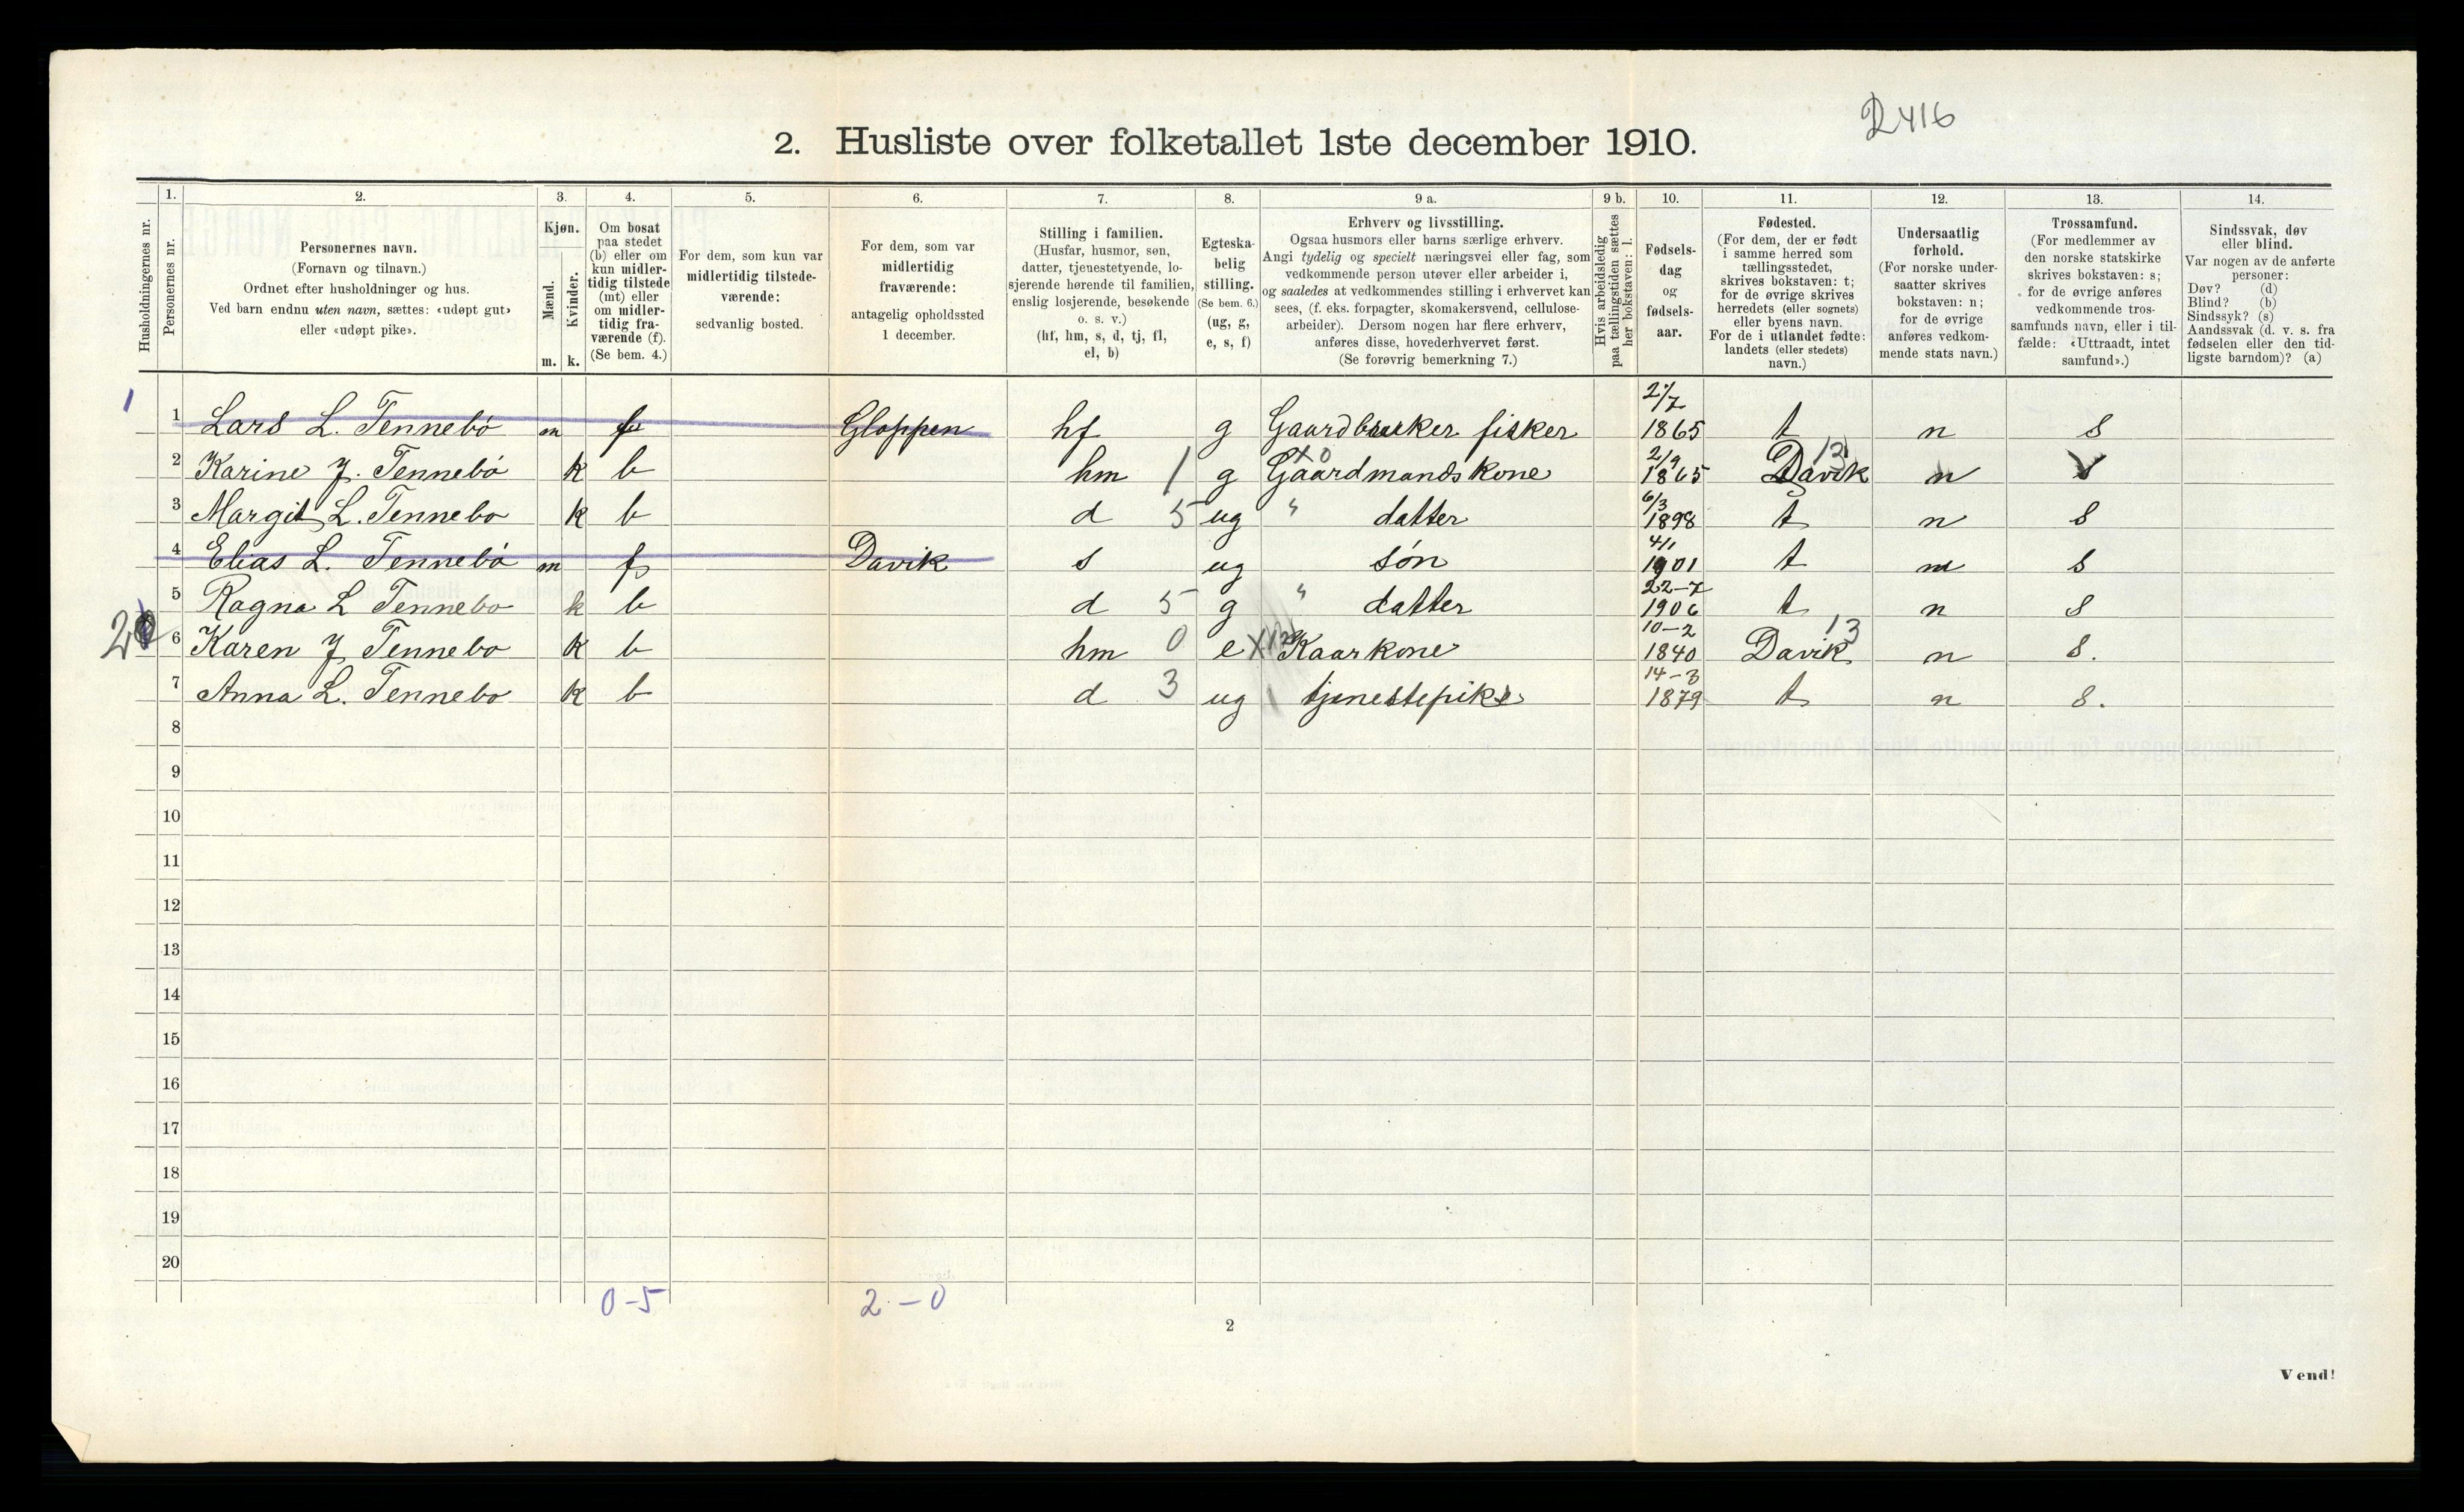 D416
2. Husliste over folketallet 1ste december 1910.
Husholdningernes nr.
1. Personernes nr.
2. Personernes navn.
(Fornavn og tilnavn.)
Ordnet efter husholdninger og hus.
Ved barn endnu uten navn, sættes: «udøpt gut»
eller «udøpt pike».
3. Kjøn.
Mænd. m.
Kvinder. k.
4. Om bosat
paa stedet
(b) eller om
kun midler-
tidig tilstede
(mt) eller
om midler-
tidig fra-
værende (f).
(Se bem. 4.)
5. For dem, som kun var
midlertidig tilstede-
værende:
sedvanlig bosted.
6. For dem, som var
midlertidig
fraværende:
antagelig opholdssted
1 december.
7. Stilling i familien.
(Husfar, husmor, søn,
datter, tjenestetyende, lo-
sjerende hørende til familien,
enslig losjerende, besøkende
o. s. v.)
(hf, hm, s, d, tj, fl,
el, b)
8. Egteska-
belig
stilling.
(Se bem. 6.)
(ug, g,
e, s, f)
9 a. Erhverv og livsstilling.
Ogsaa husmors eller barns særlige erhverv.
Angi tydelig og specielt næringsvei eller fag, som
vedkommende person utøver eller arbeider i,
og saaledes at vedkommendes stilling i erhvervet kan
sees, (f. eks. forpagter, skomakersvend, cellulose-
arbeider). Dersom nogen har flere erhverv,
anføres disse, hovederhvervet først.
(Se forøvrig bemerkning 7.)
9 b. Hvis arbeidsledig
paa tællingstiden sættes
her bokstaven: l.
10. Fødsels-
dag
og
fødsels-
aar.
11. Fødested.
(For dem, der er født
i samme herred som
tællingsstedet,
skrives bokstaven: t;
for de øvrige skrives
herredets (eller sognets)
eller byens navn.
For de i utlandet fødte:
landets (eller stedets)
navn.)
12. Undersaatlig
forhold.
(For norske under-
saatter skrives
bokstaven: n;
for de øvrige
anføres vedkom-
mende stats navn.)
13. Trossamfund.
(For medlemmer av
den norske statskirke
skrives bokstaven: s;
for de øvrige anføres
vedkommende tros-
samfunds navn, eller i til-
fælde: «Uttraadt, intet
samfund».)
14. Sindssvak, døv
eller blind.
Var nogen av de anførte
personer:
Døv? (d)
Blind? (b)
Sindssyk? (s)
Aandssvak (d. v. s. fra
fødselen eller den tid-
ligste barndom)? (a)
1 1 Lars L. Tennebö m f Gloppen hf g Gaardbruker fisker 2/7 1865 t n s
2 Karine J. Tennebö k b hm 1 g X0 Gaardmandskone 2/9 1865 Davik 13 n s
3 Margit L. Tennebo k b d 5 ug " datter 6/3 1898 t n s
4 Elias L. Tennebö m f Davik s ug søn 4/1 1901 t n s
5 Ragna L Tennebo k b d 5 g " datter 22-7 1906 t n s
2 6 Karen J Tennebo k b hm 0 e Kaarkone 10-2 1840 Davik 13 n s.
7 Anna L. Tennebo k b d 3 ug tjenestepike 14-3 1879 t n s.
8
9
10
11
12
13
14
15
16
17
18
19
20
0-5 2-0
2
Vend!